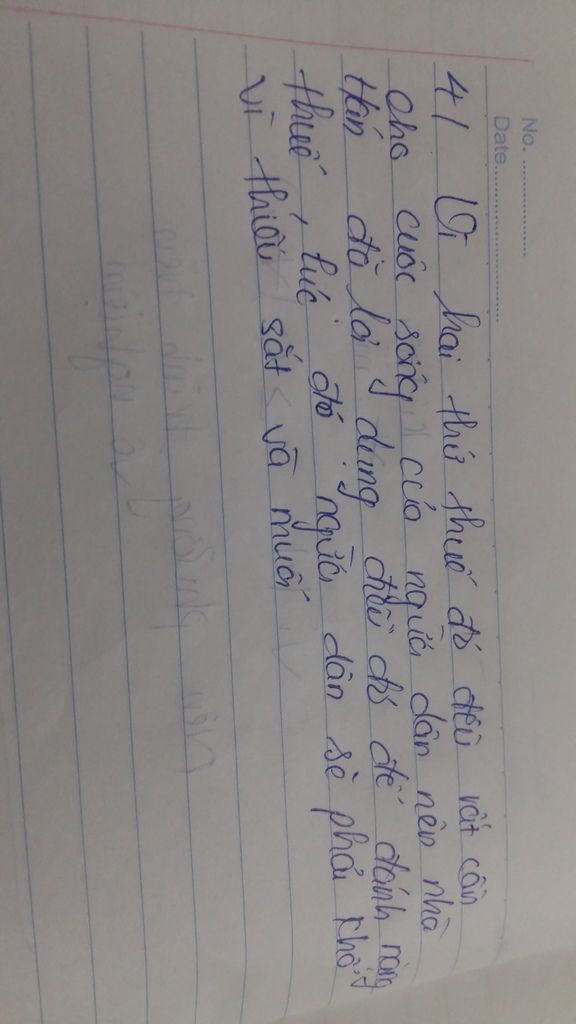 No. ........................
Date..............................
4/ Vì hai thứ thuế đó đều rất cần
cho cuộc sống của người dân nên nhà
Hán đã lợi dụng điều đó để đánh nặng
thuế, lúc đó người dân sẽ phải khổ
vì thiếu sắt và muối